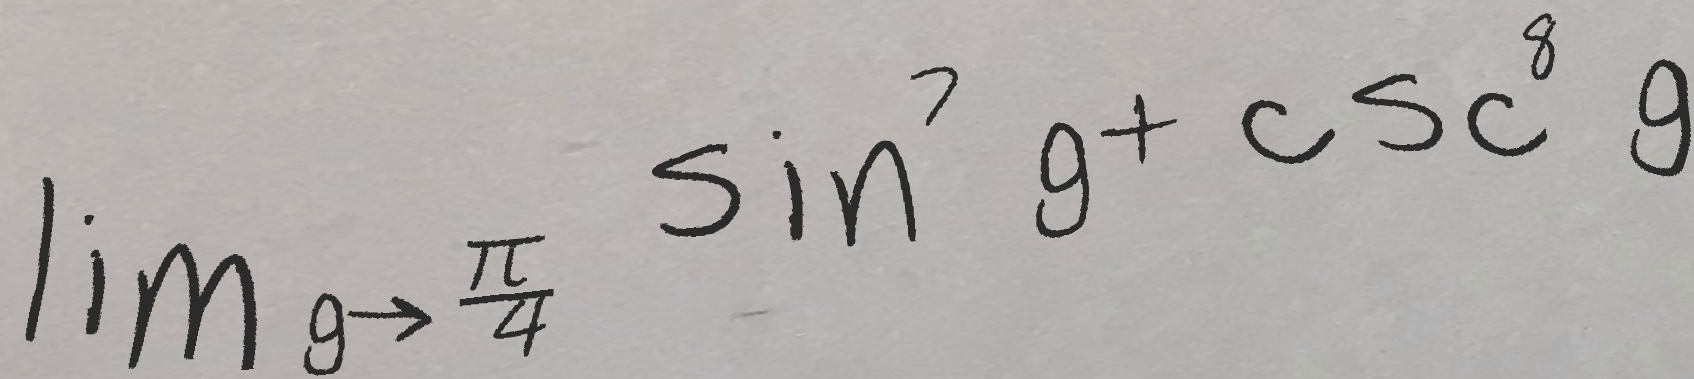 lim g→π/4 sin⁷ g + csc⁸ g